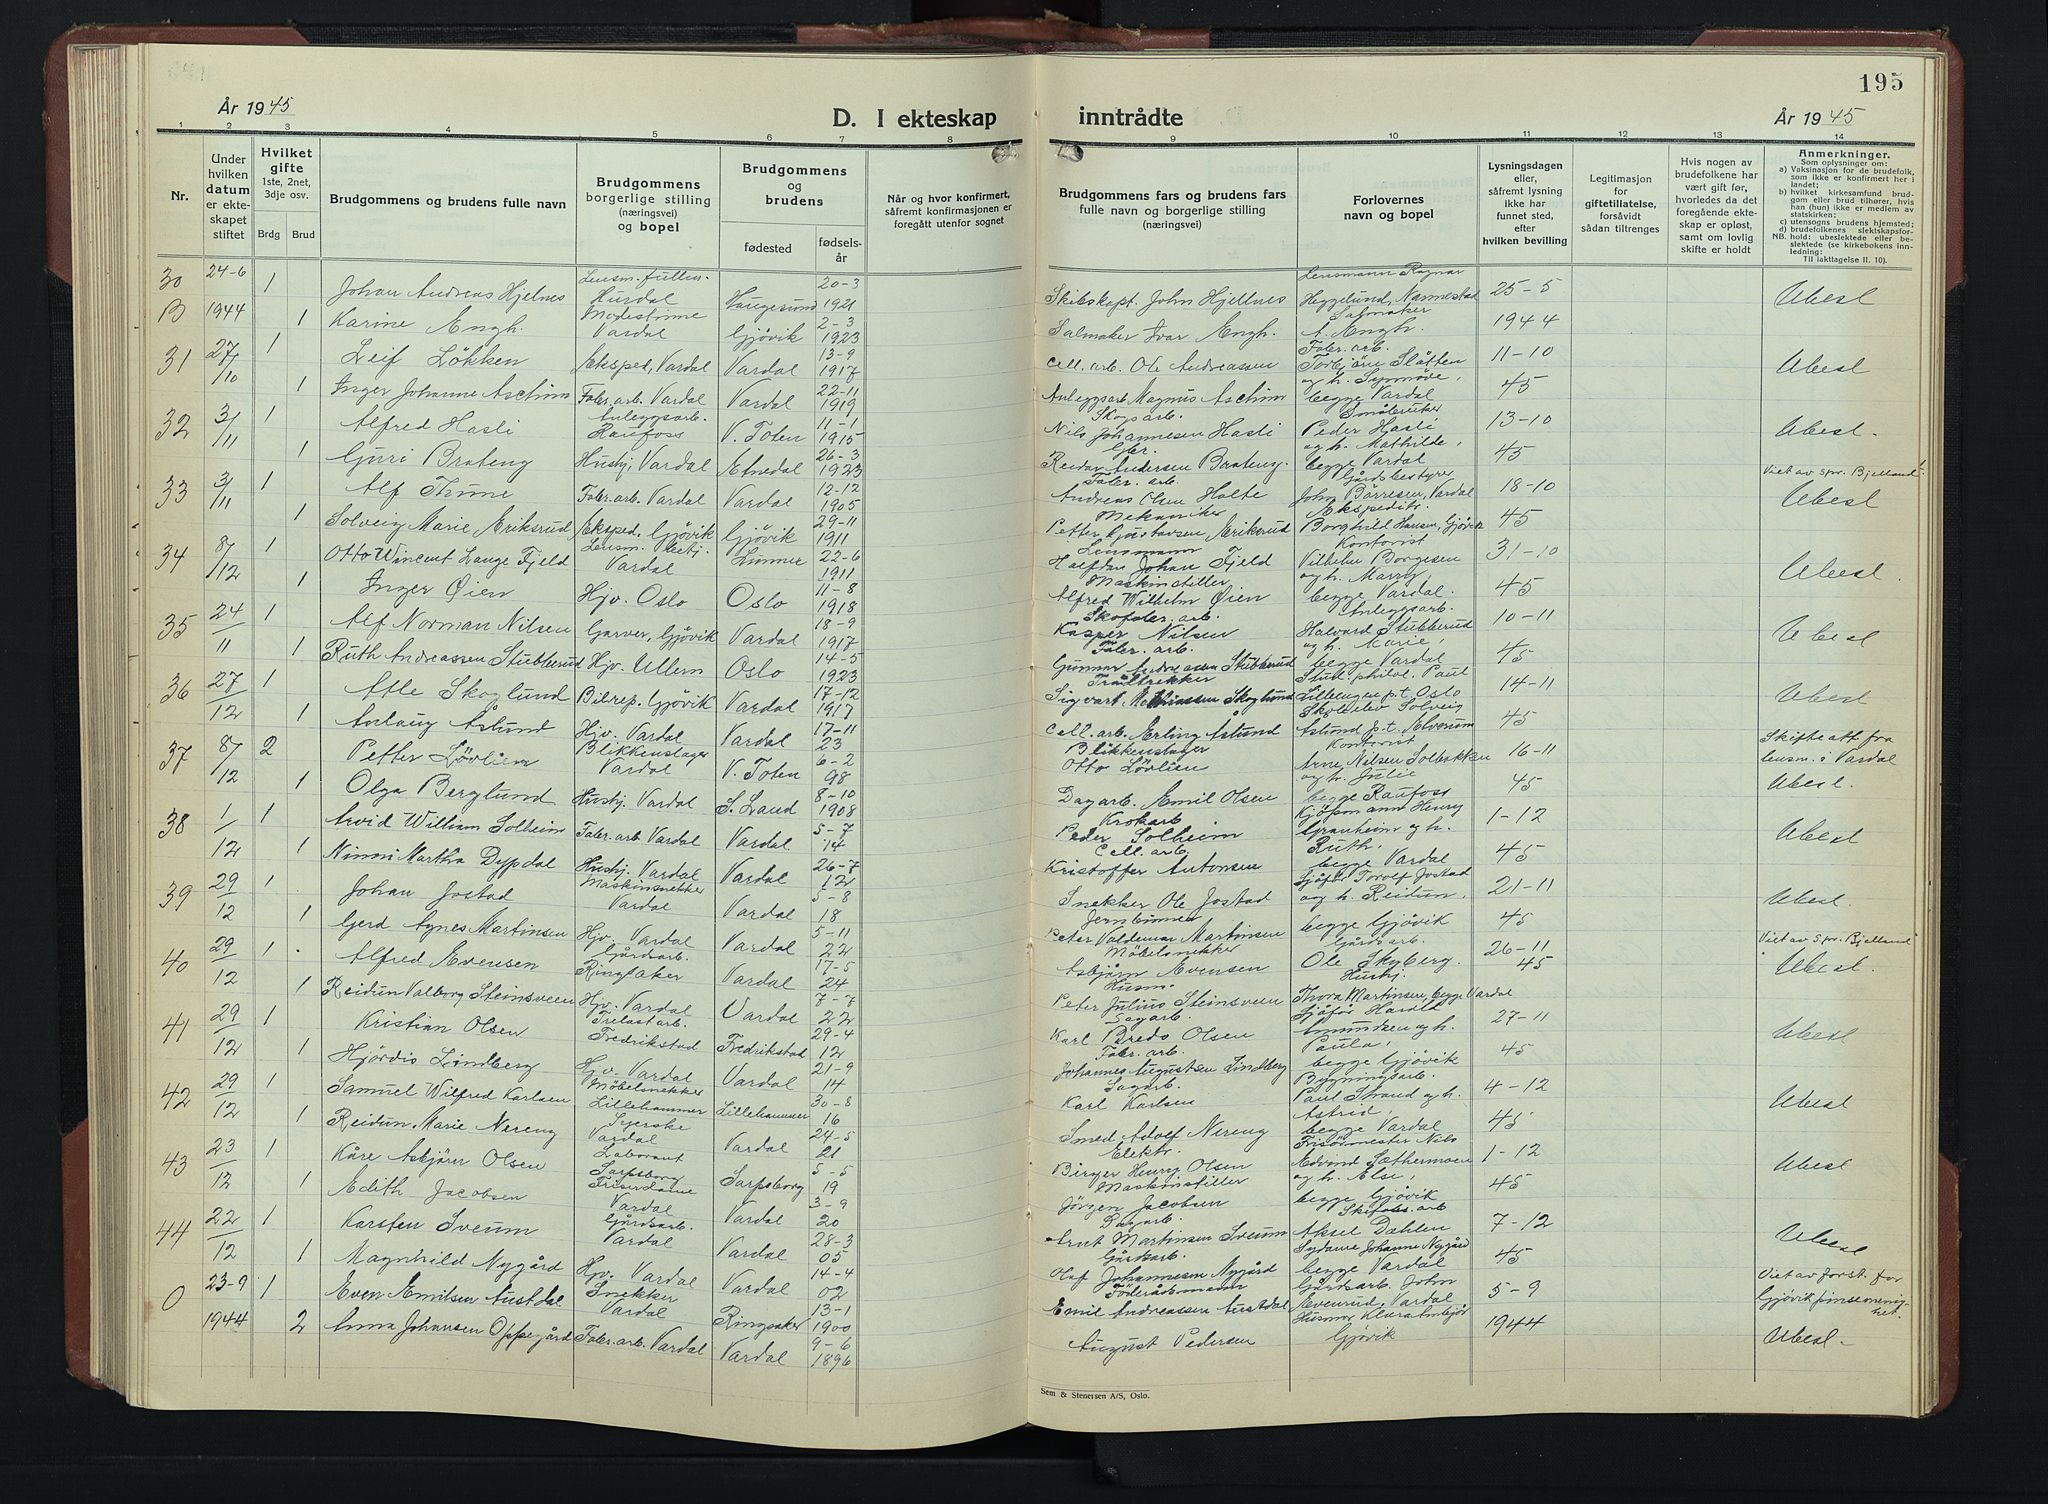 195
År 1945
D. I ekteskap inntrådte
År 1945
1 2 3 4 5 6 7 8 9 10 11 12 13 14
Nr.
Under hvilken datum er ekteskapet stiftet
Hvilket gifte 1ste, 2net, 3dje osv.
Brdg Brud
Brudgommens og brudens fulle navn
Brudgommens borgerlige stilling (næringsvei) og bopel
Brudgommens og brudens
fødested fødselsår
Når og hvor konfirmert, såfremt konfirmasjonen er foregått utenfor sognet
Brudgommens fars og brudens fars fulle navn og borgerlige stilling (næringsvei)
Forlovernes navn og bopel
Lysningsdagen eller, såfremt lysning ikke har funnet sted, efter hvilken bevilling
Legitimasjon for giftetillatelse, forsåvidt sådan tiltrenges
Hvis nogen av brudefolkene har vært gift før, hvorledes da det foregående ekteskap er opløst, samt om lovlig skifte er holdt
Anmerkninger.
Som oplysninger om:
a) Vaksinasjon for de brudefolk, som ikke er konfirmert her i landet;
b) hvilket kirkesamfund brudgom eller brud tilhører, hvis han (hun) ikke er medlem av statskirken;
c) utensogns brudens hjemsted;
d) brudefolkenes slektskapsforhold: ubeslektede eller beslektede (se kirkebokens innledning:
NB.
Til iakttagelse II. 10).
30 B 24-6 1944 1 Johan Andreas Hjelnes Lensm. fullm. Hurdal Haugesund 20-3 1921 Skibskapt. John Hjellnes Lensmann Ragnar Heggelund, Nannestad 25-5 Ubesl
1 Karine Engh. Modestinne Vardal Gjövik 2-3 1923 Salmaker Ivar Engh. Salmaker A. Engh. 1944
31 27/10 1 Leif Lökken Eksped, Vardal Vardal 13-9 1917 Cell. arb. Ole Andreassen Fabr. arb. Torbjörn Slåtten 11-10 Ubesl
1 Inger Johanne Aschim Fabr. arb. Vardal Vardal 22-11 1919 Anleggsarb. Magnus Aschim og h. Synnöve, begge Vardal 45
32 3/11 1 Alfred Hasli Anleggsarb. Raufoss V. Toten 11-1 1915 Skogsarb. Nils Johannesen Hasli Småbruker Peder Hasli 13-10 Ubesl.
1 Guri Bråteng Hushj, Vardal Etnedal 26-3 1923 Reidar Andersen Bråteng. og h. Mathilde, begge Vardal 45
33 3/11 1 Alf Thune Fabr. arb. Vardal Vardal 12-12 1905 Fabr. arb. Andreas Olsen Holte Gårdsbestyrer John Börresen, Vardal 18-10 Viet av spr. Bjelland. Ubesl
1 Solveig Marie Eriksrud Eksped. Gjövik Gjövik 29-11 1911 Mekaniker Petter Gustavsen Eriksrud Ekspeditr. Borghild Hansen, Gjövik 45
34 8/12 1 Otto Wincent Lange Fjeld Lensm. betj. Vardal Lunner 22-6 1911 Lensmann Halfdan Johan Fjeld Kontorist Vilhelm Borgesen 31-10 Ubesl.
1 Inger Øien Hjv. Oslo Oslo 11-8 1918 Maskinstiller Alfred Wilhelm Øien og h. Marry, begge Vardal. 45
35 24/11 1 Alf Norman Nilsen Garver, Gjövik Vardal 18-9 1917 Skofabr. arb. Kasper Nilsen Anleggsarb. Halvard Stubberud 10-11 Ubesl
1 Ruth Andreassen Stubberud Hjv. Ullern Oslo 14-5 1923 Fabr. arb. Gunnar Andreassen Stubberud og h. Marie, begge Vardal 45
36 27/12 1 Atle Skoglund Bilrep. Gjövik Vardal 17-12 1917 Trålltrekker Sigvart Mathiassen Skoglund Stud. philol. Paul Lillengen p.t. Oslo 14-11 Ubesl
1 Aslaug Åslund Hjv. Vardal Vardal 17-11 23 Cell. arb. Erling Åslund Skoleelev Solveig Åslund p.t. Elverum 45
37 8/12 2 Petter Lövlien Blikkenslager Vardal V. Toten 6-2 98 Blikkenslager Otto Lövlien Kontorist Arne Nilsen Solbakken 16-11 Skifteatt. fra lensm. i Vardal
1 Olga Berglund Hushj. Vardal S. Land 8-10 1908 Dagarb. Emil Olsen og h. Julie begge Raufoss 45 Ubesl.
38 1/12 1 Arvid William Solheim Fabr. arb Vardal Vardal 5-7 14 Peder Solheim Kjöpmann Henry Granheim og h. 1-12 Ubesl
1 Ninni Martha Dypdal Hushj. Vardal Vardal 26-7 12 Cell. arb. Kristoffer Antonsen Ruth, begge Vardal 45
39 29/12 1 Johan Jostad Maskinsnekker Vardal Vardal 5-8 18 Snekker Ole Jostad Sjåför Torolf Jostad og h. Reidun, 21-11 Ubesl.
1 Gerd Agnes Martinsen Hjv. Vardal Vardal 5-11 22 Peter Valdemar Martinsen begge Gjövik 45
40 29/12 1 Alfred Evensen Gårdsarb. Ringsaker Vardal 17-5 24 Möbelsnekker Asbjörn Evensen Gårdsarb. Ole Skyberg. 26-11 45 Viet av Spr. Bjelland Ubesl.
1 Reidun Valborg Steinsveen Hjv. Vardal Vardal 7-7 22 Husm. Peter Julius Steinsveen Hushj. Thora Martinsen, begge Vardal
41 29/12 1 Kristian Olsen Trelastarb. Fredrikstad Fredrikstad 29-4 12 Sagarb. Karl Olsen Sjåför Harald Amundsen og h. 27-11 Ubesl
1 Hjördis Lindberg Hjv. Vardal Vardal 21-9 14 Fabr. arb. Johannes Augustsen Lindberg Paula, begge Gjövik 45
42 29/12 1 Samuel Wilfred Karlsen Möbelsnekker Lillehammer Lillehammer 30-8 16 Sagarb. Karl Karlsen Bygningsarb. Paul Strand og h. 4-12 Ubesl
1 Reidun Marie Nereng Syerske Vardal Vardal 24-5 21 Smed Adolf Nereng Astrid, begge Vardal 45
43 23/12 1 Kåre Asbjörn Olsen Laborant Sarpsborg Sarpsborg 5-5 19 Elektr. Birger Henry Olsen Frisörmester Nils Edvind Sæthermoen 1-12 Ubesl
1 Edith Jacobsen Friserdame Vardal Vardal 3-9 20 Maskinstiller Jörgen Jacobsen og h. Else, begge Gjövik 45
44 22/12 1 Karsten Sveum Gårdsarb. Vardal Vardal 28-3 05 Sagarb. Ernt Martinsen Sveum Skofabr. arb Aksel Dahlen 7-12 Ubesl
1 Magnhild Nygård Hjv. Vardal Vardal 14-4 02 Gårdsarb. Olaf Johannesen Nygård Sydame Johanne Nygård begge Vardal 45
O 23-9 1944 1 Even Emilsen Austdal Snekker Vardal Ringsaker 13-1 1900 Föderådsmann Emil Andreassen Austdal Gårdsarb. John Evenrud. Vardal 5-9 Viet av forst. for Gjövik pinsemenighet.
2 Anna Johansen Oppegård Fabr. arb. Vardal Vardal 9-6 1896 August Pedersen Husmor Gjövik 1944 Ubesl.
Sem & Stenersen A/S, Oslo.